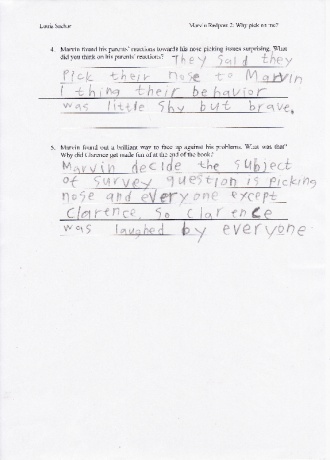 Louis Sachar Marvin Redpost 2: Why pick on me?
4. Marvin found his parents' reactions towards his nose picking issues surprising. What
did you think on his parents' reactions? They said they
Pick their nose to Marvin
I thing their behavior
was little shy but brave.
5. Marvin found out a brilliant way to face up against his problems. What was that?
Why did Clarence get made fun of at the end of the book?
Marvin decide the subject
of survey question is picking
nose and everyone except
Clarence. So Clarence
was laughed by everyone